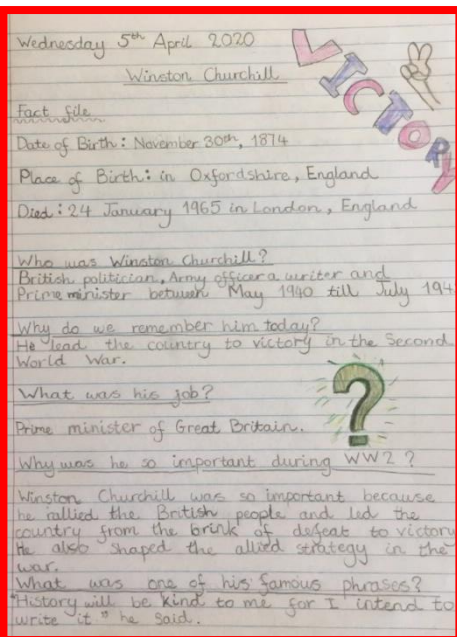 Wednesday 5th April 2020
VICTORY
Winston Churchill
Fact file
Date of Birth: November 30th, 1874
Place of Birth: in Oxfordshire, England
Died: 24 January 1965 in London, England
Who was Winston Churchill?
British politician, Army officer a writer and
Prime minister between May 1940 till July 194
Why do we remember him today?
He lead the country to victory in the Second
World War.
What was his job?
Prime minister of Great Britain.
?
Why was he so important during WW2?
Winston Churchill was so important because
he rallied the British people and led the
country from the brink of defeat to victory
He also shaped the allied strategy in the
war.
What was one of his famous phrases?
"History will be kind to me for I intend to
write it" he said.